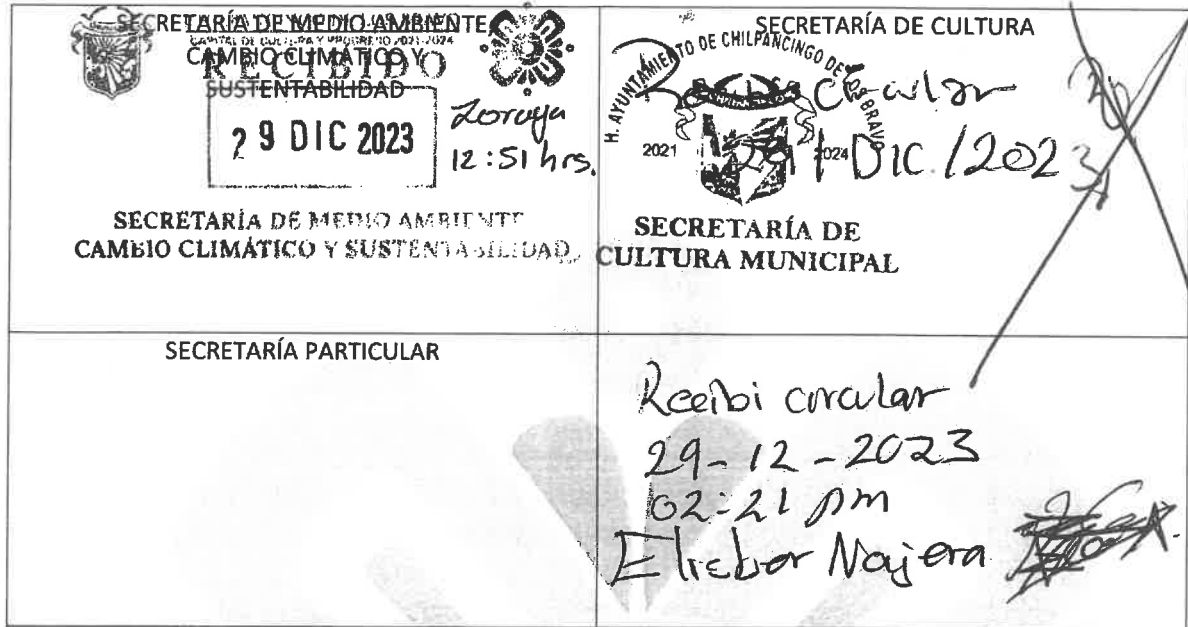 SECRETARÍA DE MEDIO AMBIENTE
CAMBIO CLIMÁTICO Y
SUSTENTABILIDAD
RECIBIDO
29 DIC 2023
Zoraya
12:51 hrs.
SECRETARÍA DE MEDIO AMBIENTE
CAMBIO CLIMÁTICO Y SUSTENTABILIDAD
SECRETARÍA DE CULTURA
H. AYUNTAMIENTO DE CHILPANCINGO DE LOS BRAVO
2021 2024
circular
29/DIC/2023
SECRETARÍA DE
CULTURA MUNICIPAL
SECRETARÍA PARTICULAR
Recibi circular
29-12-2023
02:21 pm
Najera